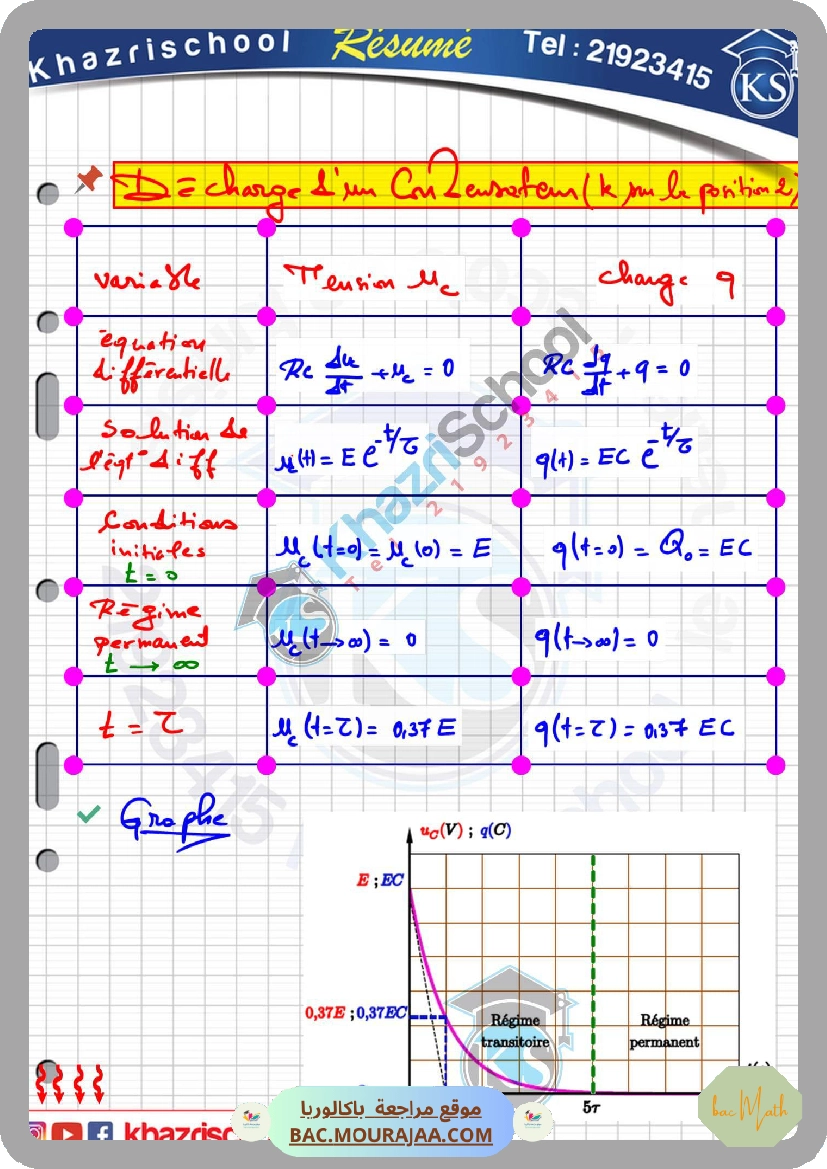 Khazrischool Résumé Tel : 21923415
KS
D = charge d'un Condensateur (k sur la position 2)
variable Tension uc charge q
équation
différentielle RC duc/dt + uc = 0 RC dq/dt + q = 0
Solution de
l'éqt° diff uc(t) = E e^-t/τ q(t) = EC e^-t/τ
Conditions
initiales uc(t=0) = uc(0) = E q(t=0) = Q₀ = EC
t = 0
Régime
permanent uc(t→∞) = 0 q(t→∞) = 0
t → ∞
t = τ uc(t=τ) = 0,37 E q(t=τ) = 0,37 EC
KhazriSchool
Tel 21923415
Graphe
uC(V) ; q(C)
E ; EC
0,37E ; 0,37EC
Régime
transitoire
Régime
permanent
5τ
khazrisc
موقع مراجعة باكالوريا
BAC.MOURAJAA.COM
bac Math